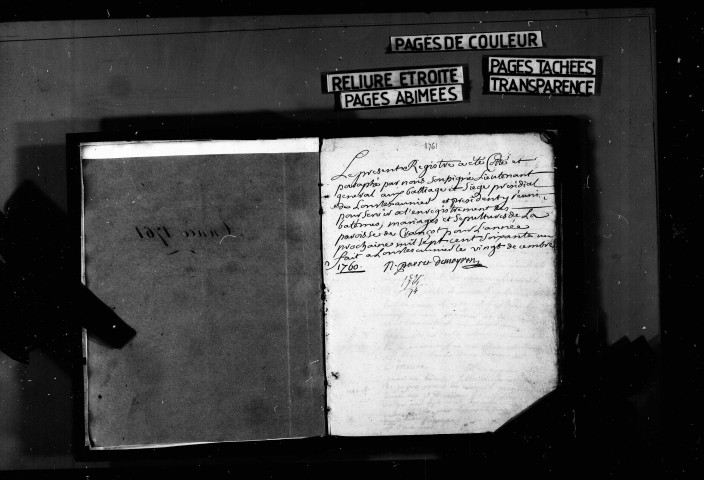 PAGES DE COULEUR
RELIURE ETROITE
PAGES ABIMÉES
PAGES TACHÉES
TRANSPARENCE
année 1761
1761
Le present Registre a été Cotté et
paraphé par nous soussigné Lieutenant
general aux balliage et siege presidial
de Lonslesaunier et president y réuni
pour servir a l'enregistrement des
batemes, mariages et sepultures de La
paroisse de Crançot pour L'année
prochaine mil sept cent soixante un
fait a Lonslesaunier le vingt decembre
1760.